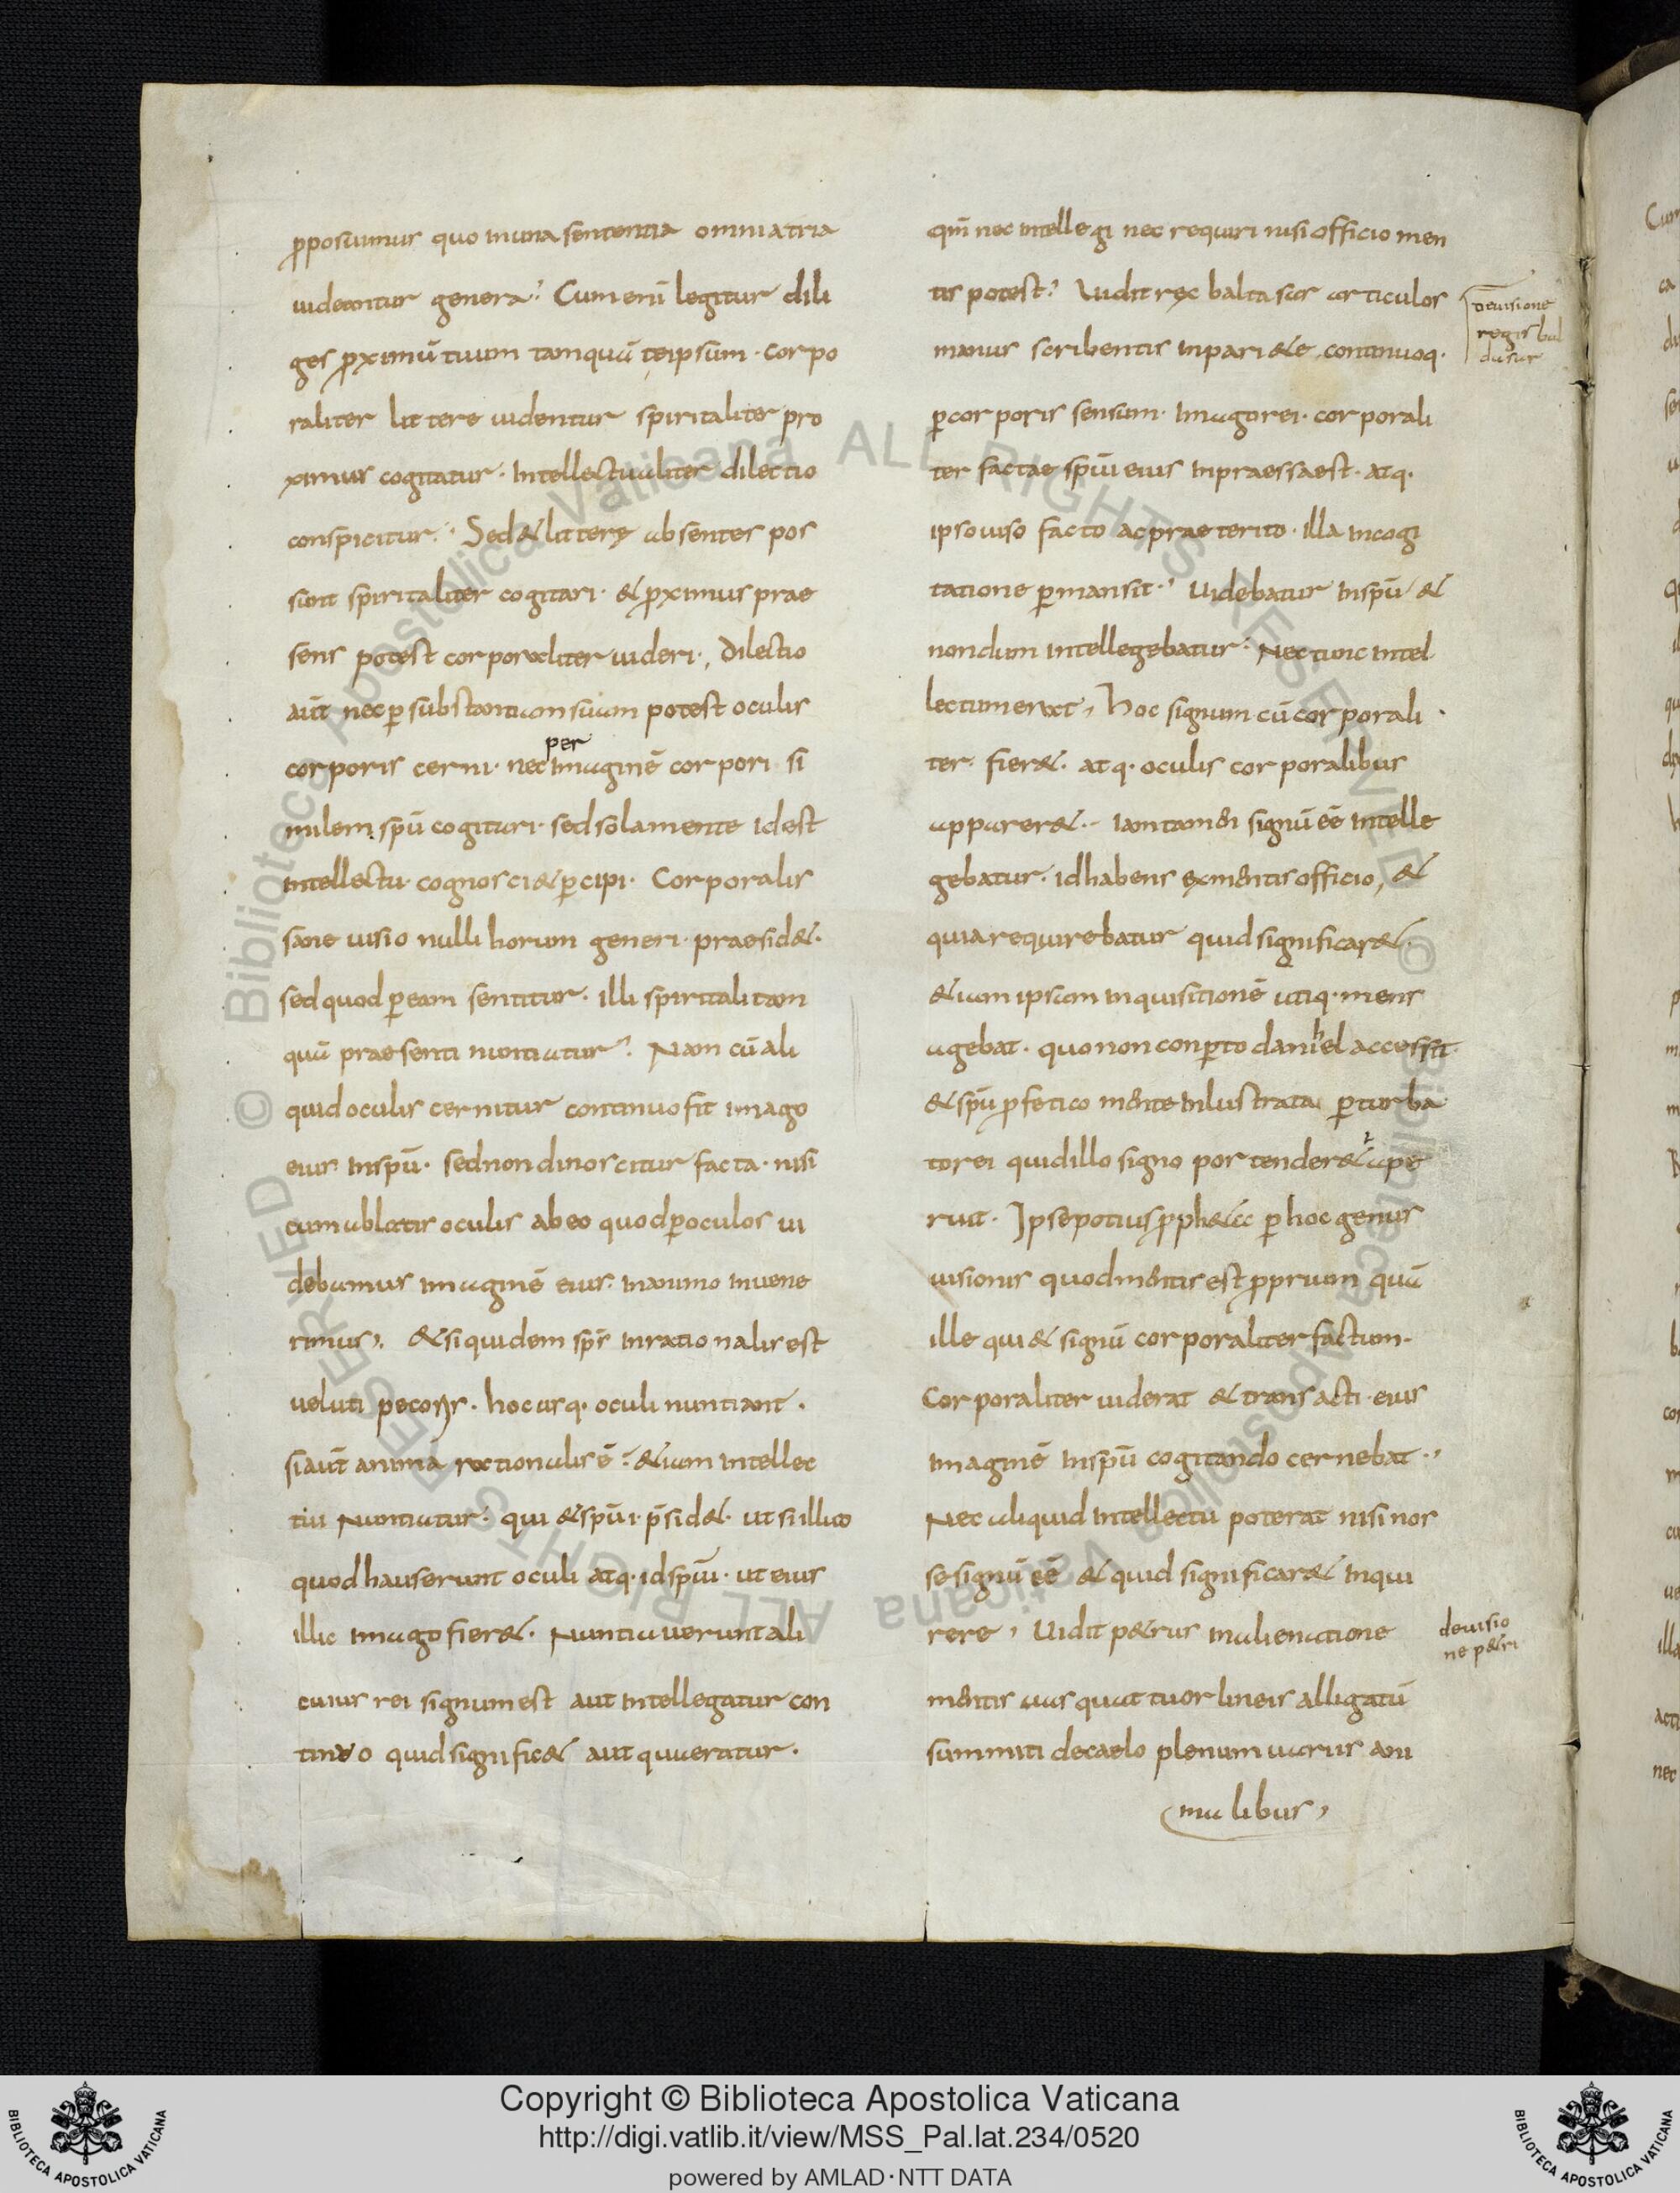 p̱posuimus quo inuna sententia omniatria
uideantur genera? Cumenī legitur dili
ges p̱ximū tuum tamquā teipsum· corpo
raliter littere uidentur spiritaliter pro
ximus cogitatur· Intellectualiter dilectio
conspicitur· Sed&litterę absentes pos
sunt spiritaliter cogitari· &p̱ximus prae
sens potest corporaliter uideri·, Dilectio
aut̄ necp̱ substantiam suam potest oculis
corporis cerni· nec per imaginē corpori si
milem spū cogitari· sed sola mente idest
intellectu cognosci &p̱cipi· Corporalis
sane uisio nulli horum generi praesid&·
sedquod p̱eam sentitur· illi spiritali tam
quā praesenti nuntiatur· Nam cū ali
quid oculis cernitur continuo fit imago
eius inspū· sednon dinoscitur facta· nisi
cum ablatis oculis abeo quod p̱oculos ui
debamus imaginē eius· inanimo inuene
rimus· &siquidem sp̄s inrationalis est
ueluti pecoris· hocusq· oculi nuntiant·
siaut̄ anima rationalis ē· &iam intellec
tui Nuntiatur· qui &spūi p̄sid&· ut si illico
quod hauserunt oculi atq· id spūi· ut eius
illic imago fier&· Nuntiauerunt ali
cuius rei signum est aut intellegatur con
tinuo quid signific& aut quaeratur·
qm̄ nec intellegi nec requiri nisi officio men
tis potest? Uidit rex baltasar articulos
manus scribentis inpari&e, continuoq·
p̱corporis sensum· Imago rei· corporali
ter factae spūi eius inpraessaest· atq·
ipso uiso facto ac praeterito· illa incogi
tatione p̱mansit· Uidebatur inspū &
nondum intellegebatur· Nec tunc intel
lectum erat, hoc signum cū corporali
ter· fier&· atq· oculis corporalibus
apparer&· Iam tamen signū eē intelle
gebatur· id habens ex mentis officio, &
quia requirebatur quid significar&·
&iam ipsam inquisitionē utiq· mens
agebat· quo non conp̱to danihel accessit·
&spū p̱fetico mente inlustrata p̱turba
to rei quid illo signo portender& ape
ruit· Ipse potius p̱ph&a p̱ hoc genus
uisionis quod mentis est p̱prium quā
ille qui & signū corporaliter factum·
Corporaliter uiderat & transacti eius
imaginē inspū cogitando cernebat·,
Nec aliquid intellectu poterat nisi nos
se signū eē & quid significar& inqui
rere, Uidit p&rus inalienatione
mentis uas quattuor lineis alligatū
summiti decaelo plenum uariis ani
malibus,
deuisione
regis bal
dasar
deuisio
ne p&ri
Copyright © Biblioteca Apostolica Vaticana
http://digi.vatlib.it/view/MSS_Pal.lat.234/0520
powered by AMLAD·NTT DATA
BIBLIOTECA APOSTOLICA VATICANA
BIBLIOTECA APOSTOLICA VATICANA